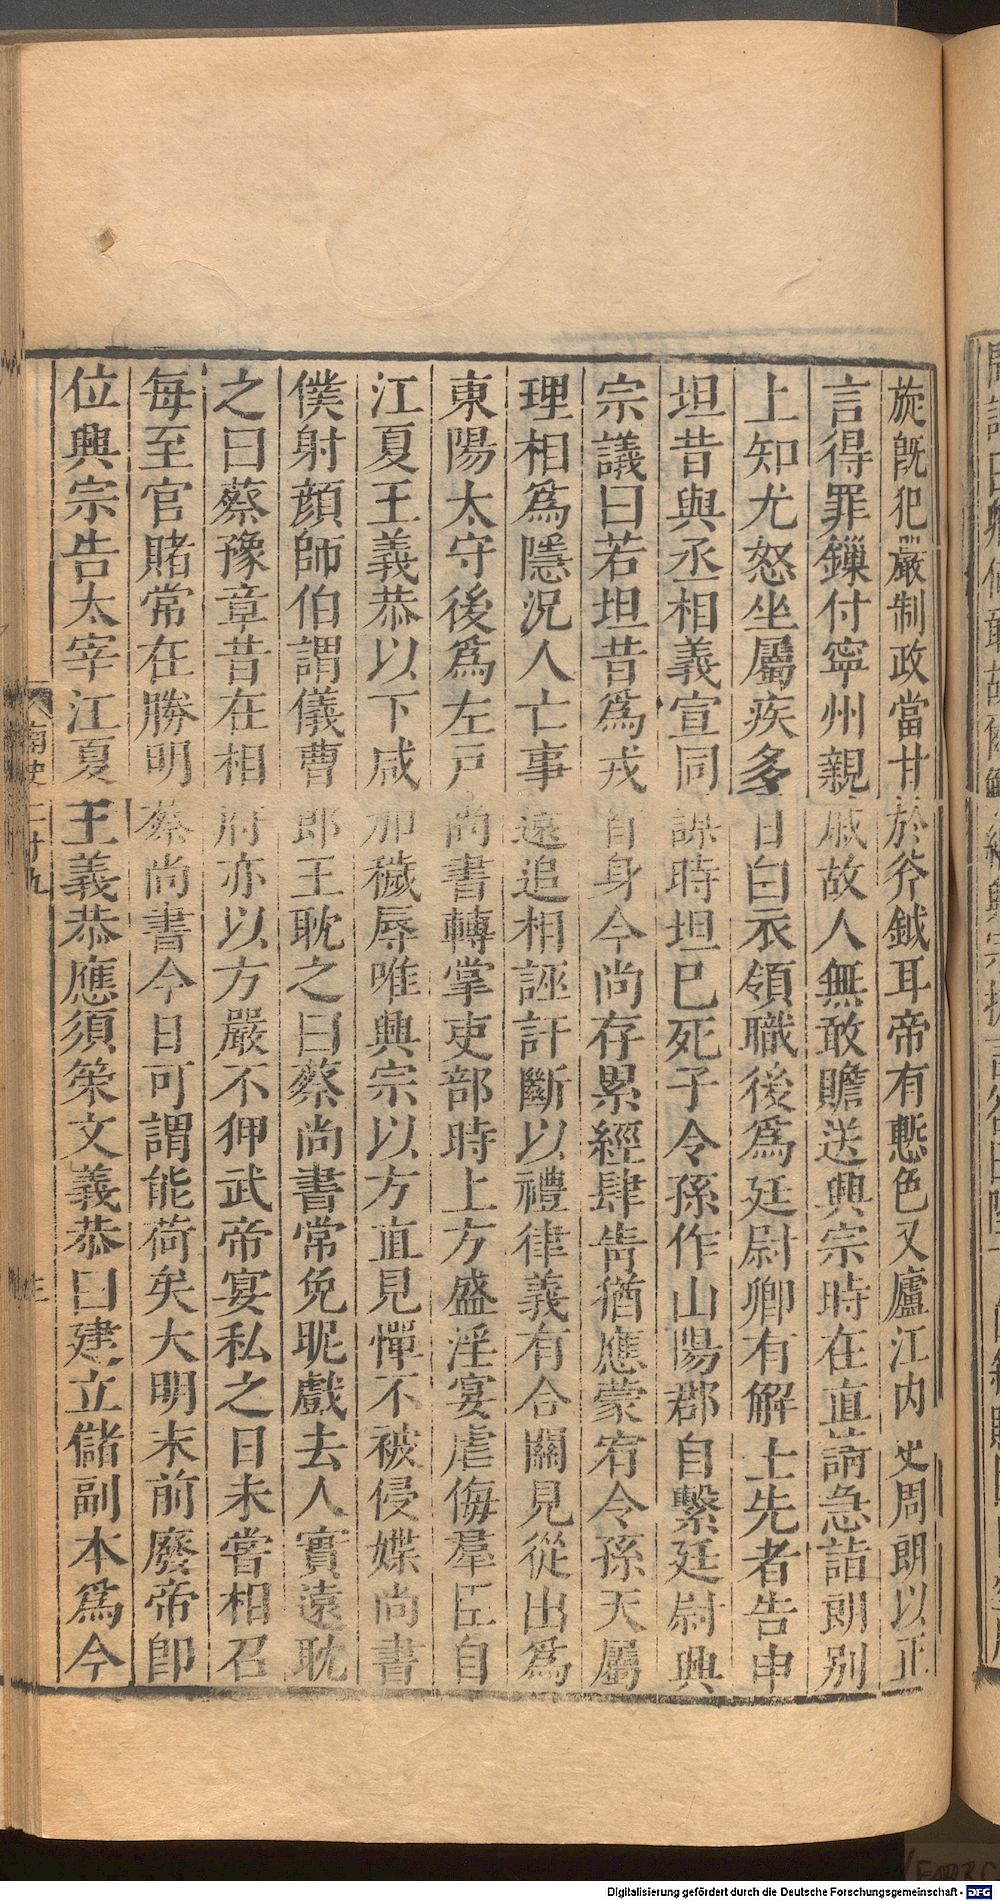 旋旣犯嚴制政當甘於斧鉞耳帝有慙色又廬江内史周朗以正
言得罪鏁付寧州親戚故人無敢贍送興宗時在直請急詣朗别
上知尤怒坐屬疾多日白衣領職後爲廷尉卿有解士先者告申
坦昔與丞相義宣同謀時坦已死子令孫作山陽郡自繫廷尉興
宗議曰若坦昔爲戎首身今尚存累經肆眚猶應蒙宥令孫天屬
理相爲隱況人亡事遠追相誣訐斷以禮律義有合關見從出爲
東陽太守後爲左戸尚書轉掌吏部時上方盛淫宴虐侮羣臣自
江夏王義恭以下咸加穢辱唯興宗以方直見憚不被侵媟尚書
僕射顔師伯謂儀曹郎王耽之曰蔡尚書常免昵戲去人實遠耽
之曰蔡豫章昔在相府亦以方嚴不狎武帝宴私之日未嘗相召
每至官賭常在勝明蔡尚書今日可謂能荷矣大明末前廢帝卽
位興宗告太宰江夏王義恭應須策文義恭曰建立儲副本爲今
南史二十九
Digitalisierung gefördert durch die Deutsche Forschungsgemeinschaft - DFG